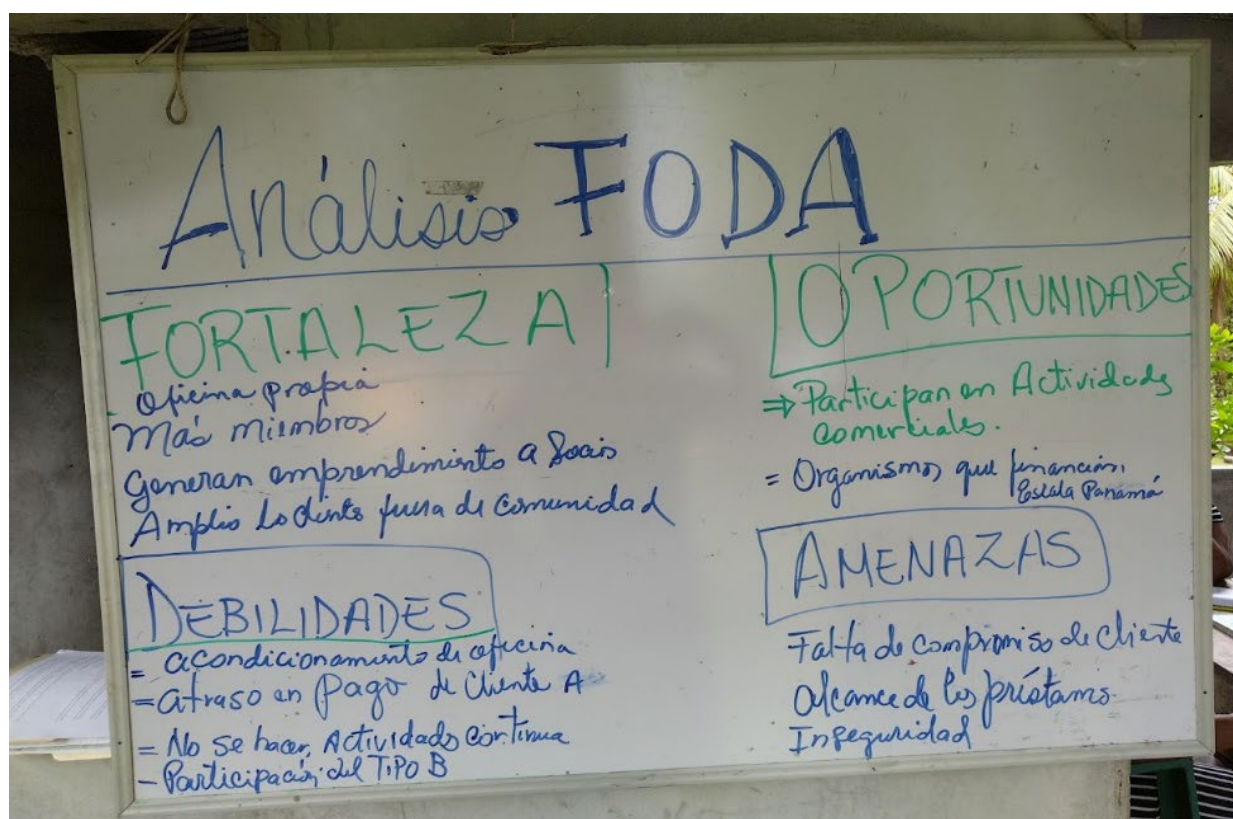 Análisis FODA
FORTALEZA
- Oficina propia
Más miembros
Generan emprendimiento a Socios
Amplio fuera de comunidad
DEBILIDADES
= acondicionamiento de oficina
= atraso en Pago de Cliente A
= No se hacen Actividades continua
- Participación del TIPO B
OPORTUNIDADES
⇒ Participan en Actividades
comerciales.
= Organismos que financian
Escala Panamá
AMENAZAS
Falta de compromiso de cliente
alcance de los préstamos
Inseguridad